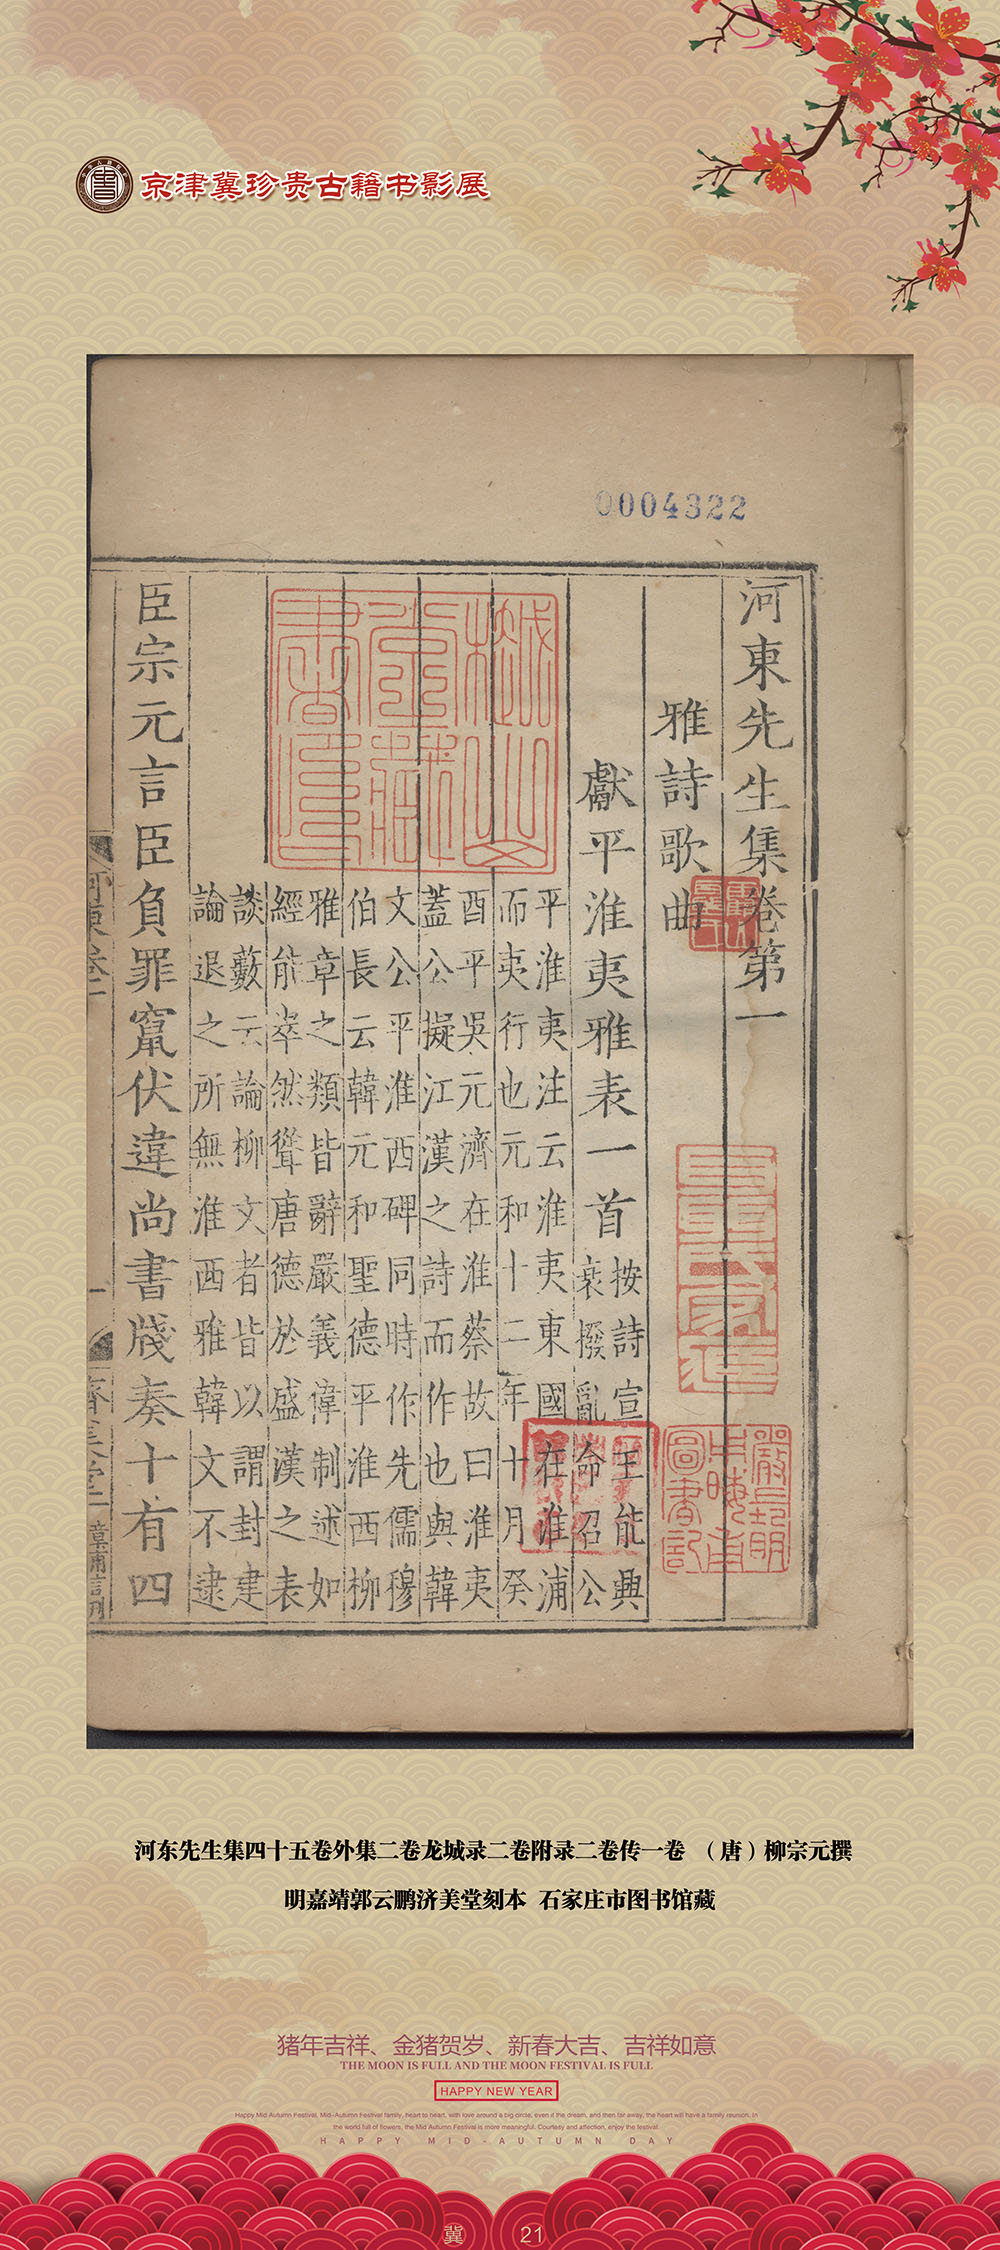 京津冀珍贵古籍书影展
0004322
河東先生集卷第一
雅詩歌曲
獻平淮夷雅表一首
按詩宣王能興
衰撥亂命召公
平淮夷注云淮夷東國在淮浦
而夷行也元和十二年十月癸
酉平吳元濟在淮蔡故曰淮夷
蓋公擬江漢之詩而作也與韓
文公平淮西碑同時作先儒穆
伯長云韓元和聖德平淮西柳
雅章之類皆辭嚴義偉制述如
經能崒然聳唐德於盛漢之表
談藪云論柳文者皆以謂封建
論退之所無淮西雅韓文不逮
臣宗元言臣負罪竄伏違尚書牋奏十有四
嚴長明用晦甫圖書記
河东先生集四十五卷外集二卷龙城录二卷附录二卷传一卷 （唐）柳宗元撰
明嘉靖郭云鹏济美堂刻本 石家庄市图书馆藏
猪年吉祥、金猪贺岁、新春大吉、吉祥如意
THE MOON IS FULL AND THE MOON FESTIVAL IS FULL
HAPPY NEW YEAR
Happy Mid Autumn Festival, Mid-Autumn Festival family, heart to heart, with love around a big circle, even if the dream, and then far away, the heart will have a family reunion. In
the world full of flowers, the Mid Autumn Festival is more meaningful. Courtesy and affection, enjoy the festival.
HAPPY MID-AUTUMN DAY
冀 21